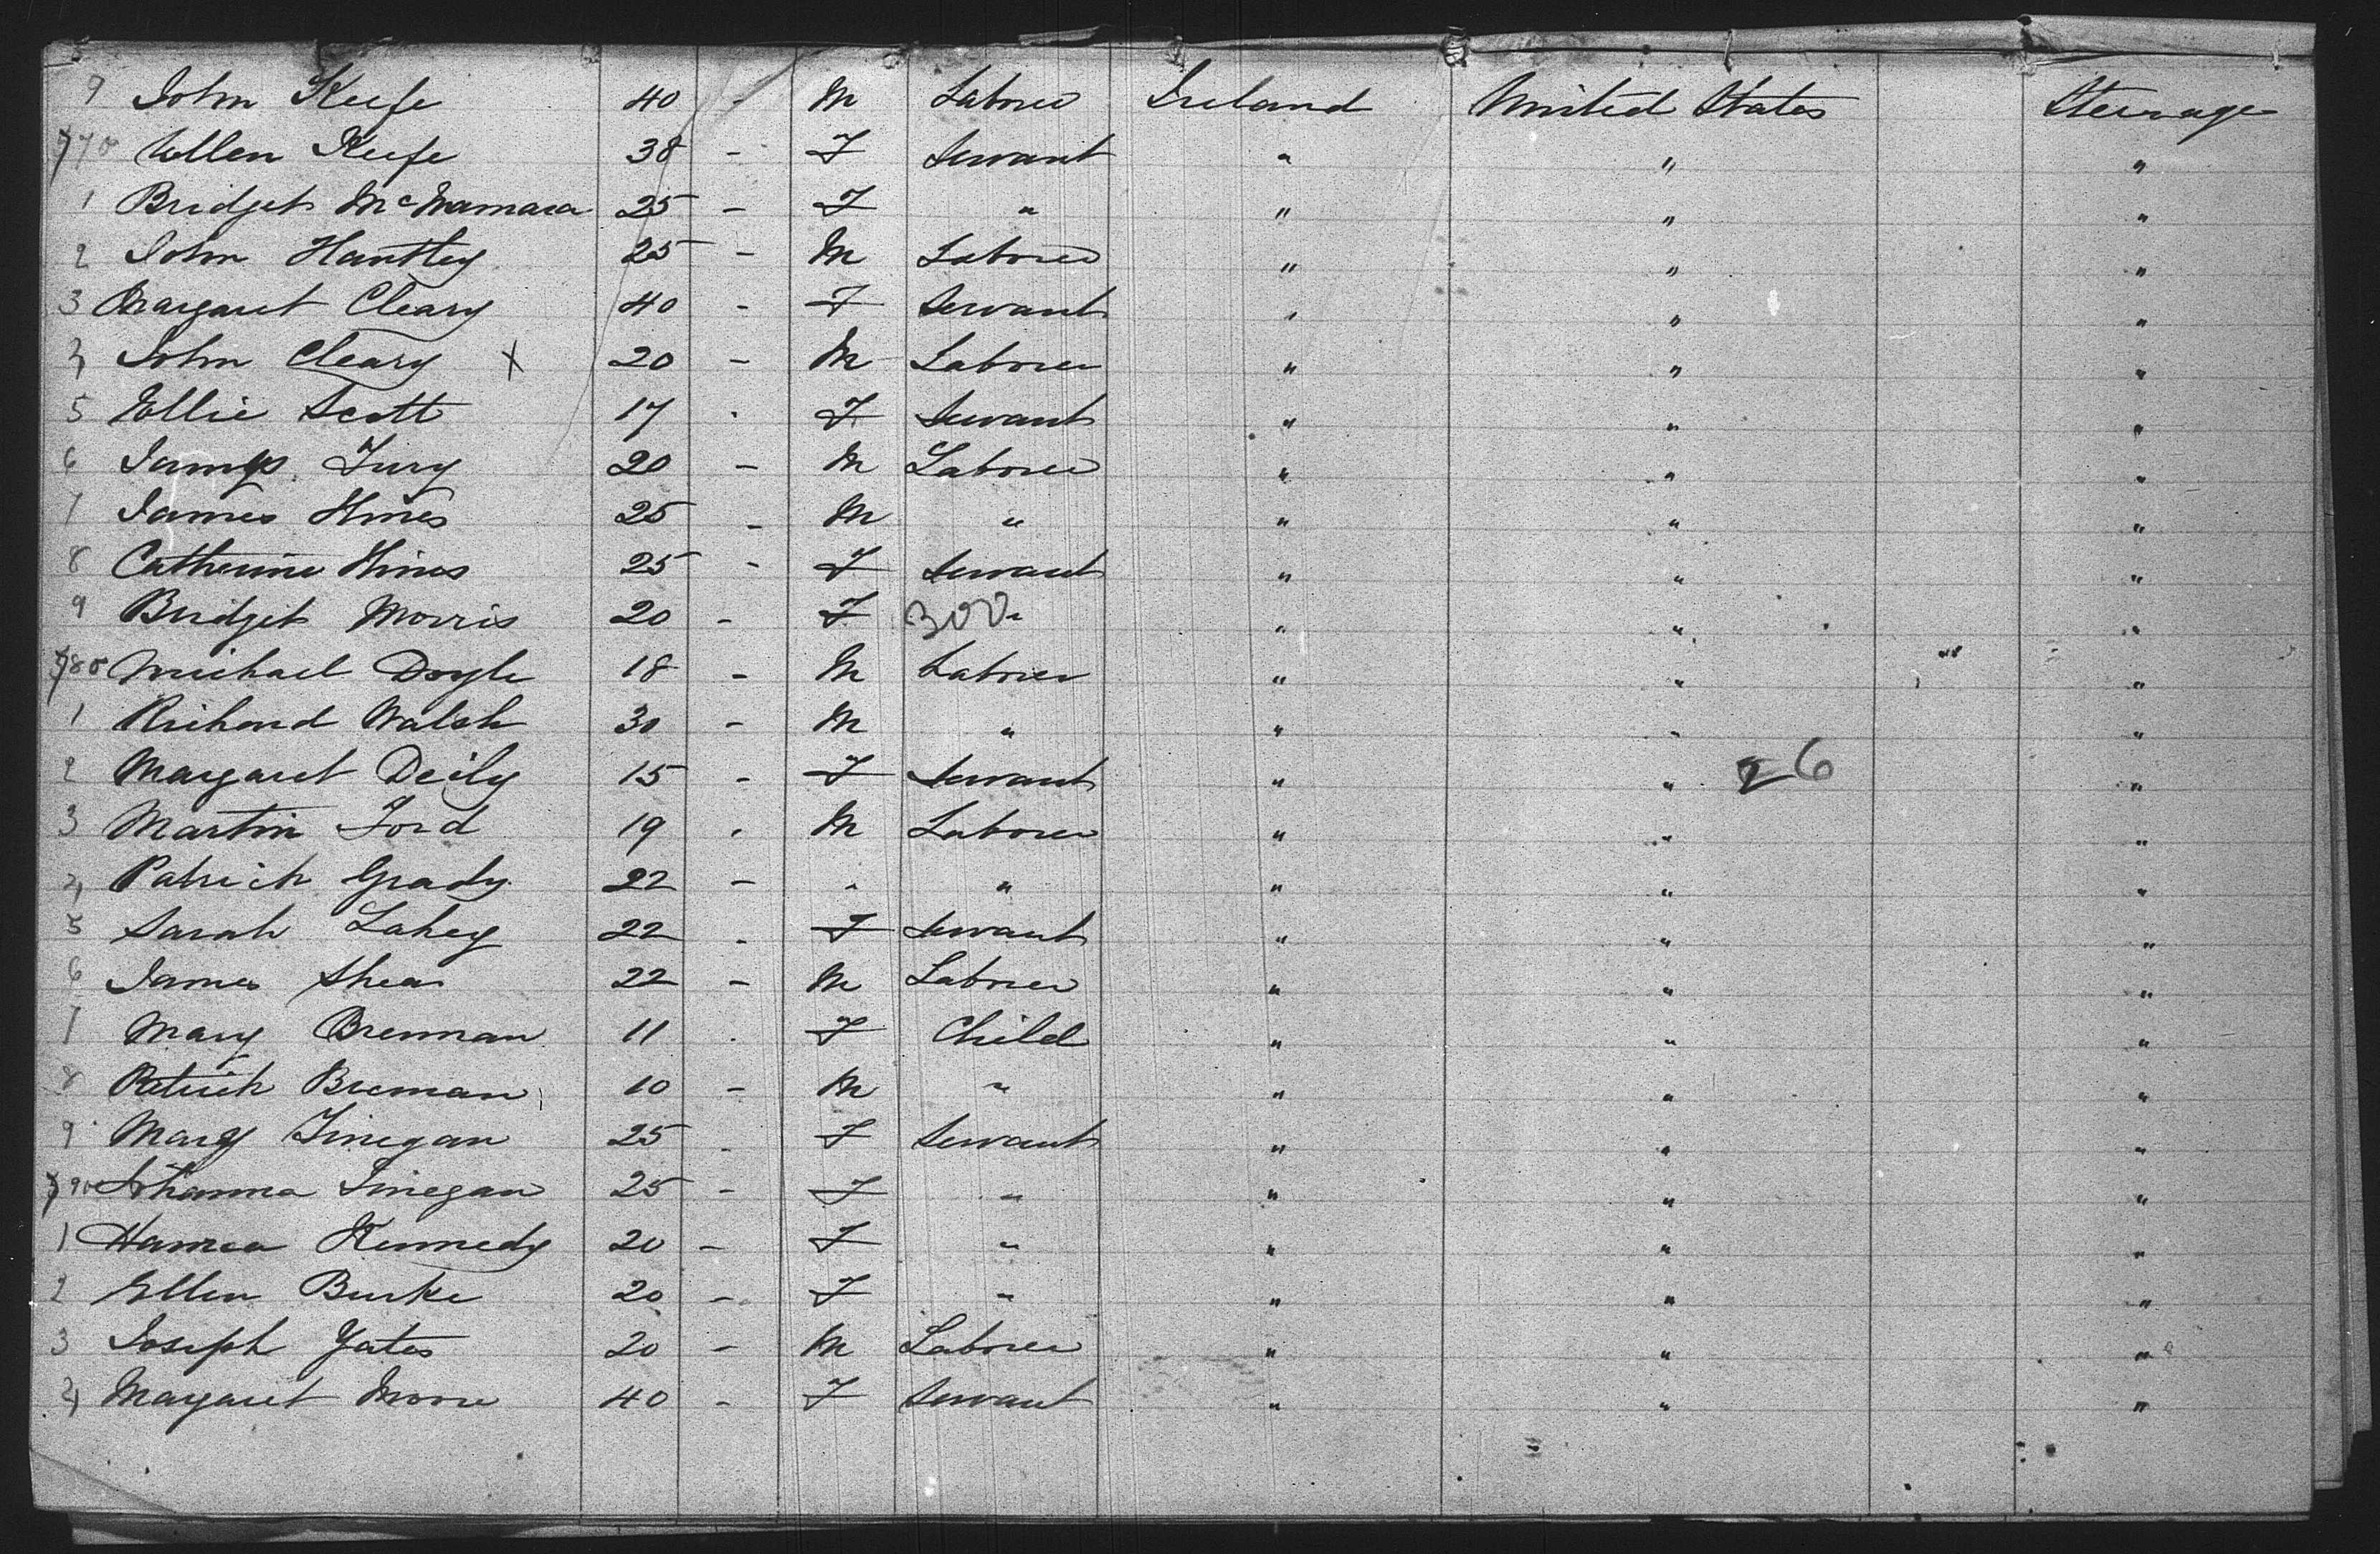 9 John Keefe 40 - M Laborer Ireland United States Steerage
770 Ellen Keefe 38 - F Servant " " "
1 Bridget McNamara 25 - F " " " "
2 John Hantley 25 - M Laborer " " "
3 Margaret Cleary 40 - F Servant " " "
4 John Cleary X 20 - M Laborer " " "
5 Ellie Scott 17 - F Servant " " "
6 James Fury 20 - M Laborer " " "
7 James Hines 25 - M " " " "
8 Catherine Hines 25 - F Servant " " "
9 Bridget Morris 20 - F 300 " " " "
780 Michael Doyle 18 - M Laborer " " "
1 Richard Walsh 30 - M " " " "
2 Margaret Deily 15 - F Servant " " 26 "
3 Martin Ford 19 - M Laborer " " "
4 Patrick Grady 22 - " " " " "
5 Sarah Lahey 22 - F Servant " " "
6 James Shea 22 - M Laborer " " "
7 Mary Brennan 11 - F Child " " "
8 Patrick Brennan 10 - M " " " "
9 Mary Finegan 25 - F Servant " " "
790 Johanna Finegan 25 - F " " " "
1 Hanna Kennedy 20 - F " " " "
2 Ellen Burke 20 - F " " " "
3 Joseph Yates 20 - M Laborer " " "
4 Margaret Moore 40 - F Servant " " "